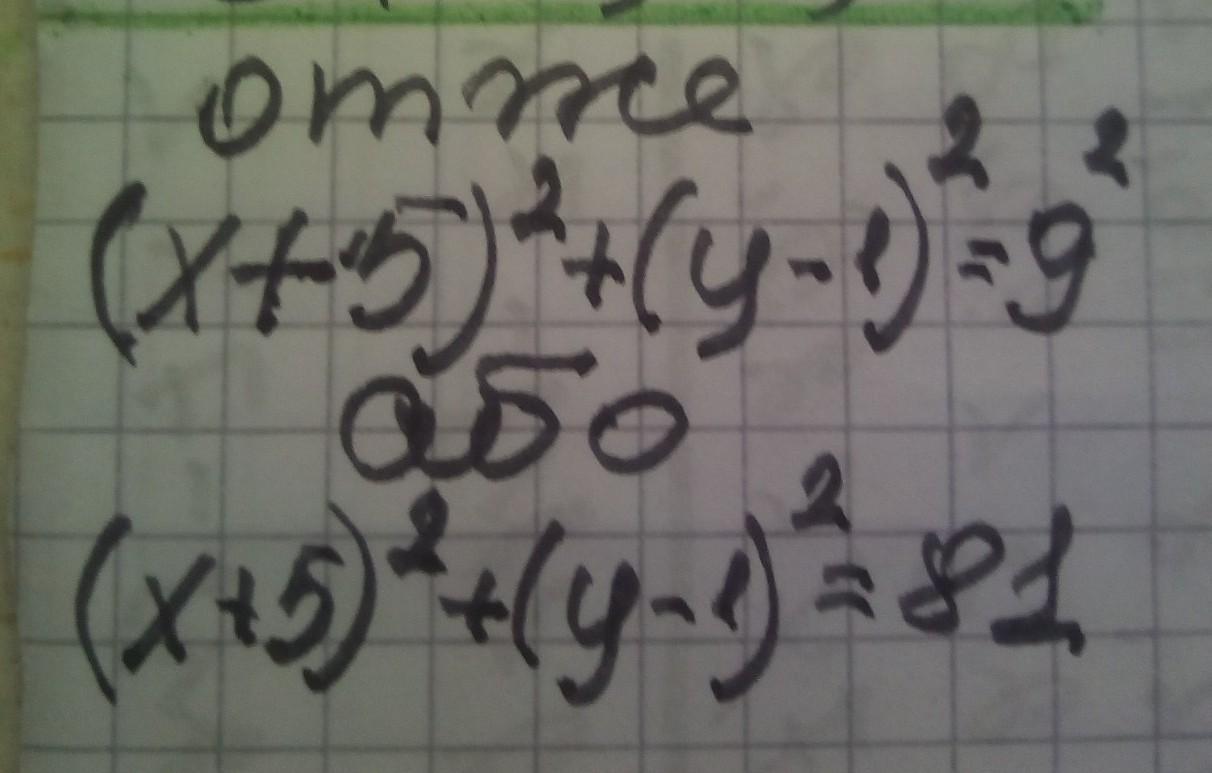 отже
(x+5)²+(y-1)²=9²
або
(x+5)²+(y-1)²=81